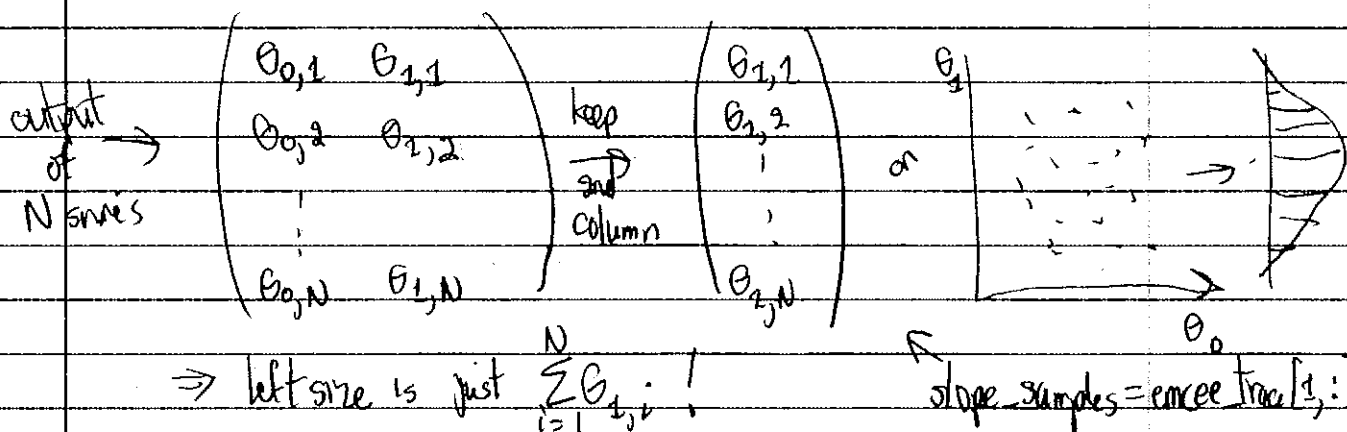 output of N snies → ( θ0,1 θ1,1
θ0,2 θ1,2
⋮
θ0,N θ1,N ) keep 2nd column → ( θ1,1
θ1,2
⋮
θ1,N ) or θ1 → θ0
⇒ left size is just ∑_{i=1}^{N} θ1,i !
slope_samples=emcee_trace[1,: